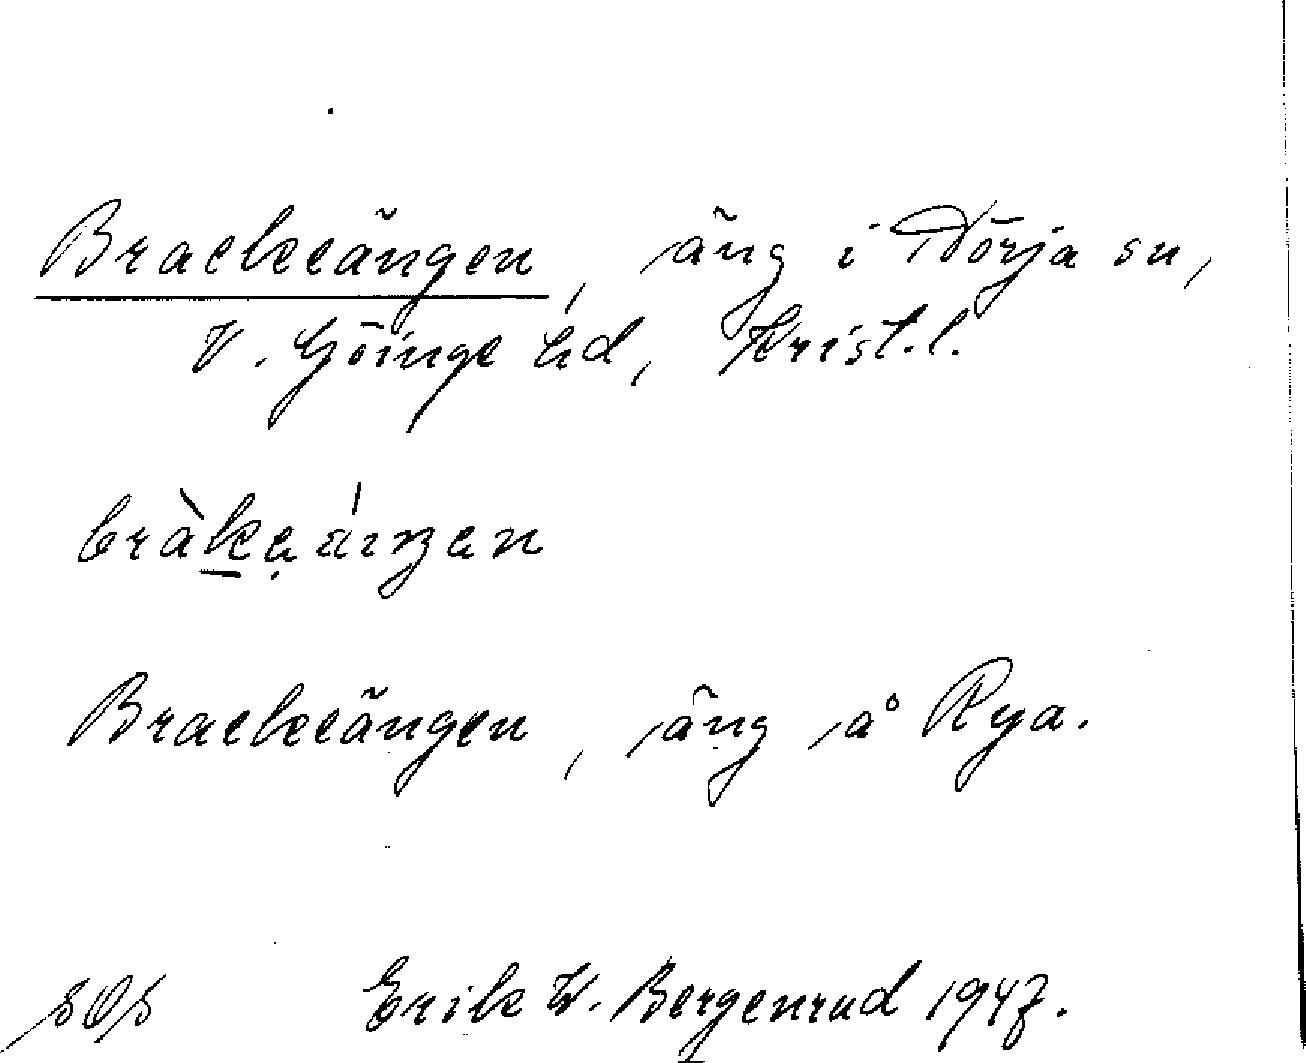 Brackeängen, äng i Nörja sn,
V. Göinge hd, Krist.l.
bràkeáŋen
Brackeängen, äng å Rya.
Erik W. Bergenrud 1947.